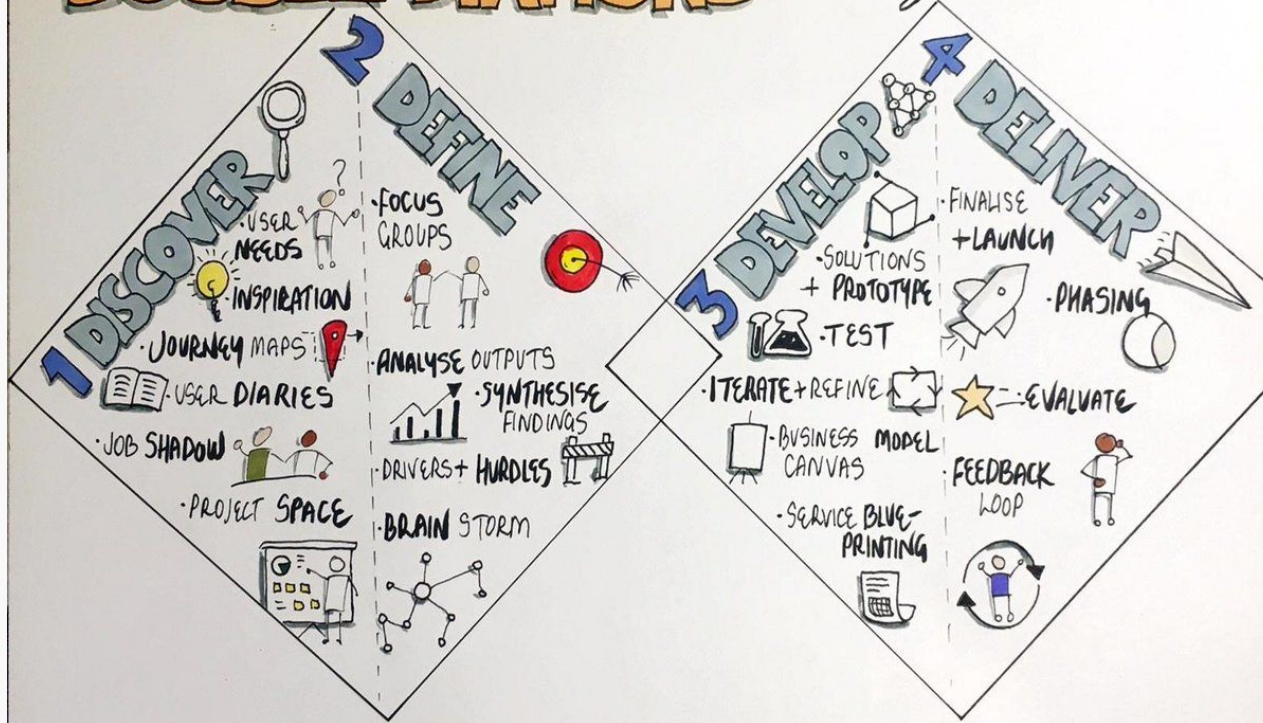 DOUBLE DIAMONDS
1 DISCOVER
• USER
NEEDS
?
• INSPIRATION
• JOURNEY MAPS
• USER DIARIES
• JOB SHADOW
• PROJECT SPACE
2 DEFINE
• FOCUS
GROUPS
• ANALYSE OUTPUTS
• SYNTHESISE
FINDINGS
• DRIVERS + HURDLES
• BRAIN STORM
3 DEVELOP
• SOLUTIONS
+ PROTOTYPE
• TEST
• ITERATE + REFINE
• BUSINESS MODEL
CANVAS
• SERVICE BLUE-
PRINTING
4 DELIVER
• FINALISE
+ LAUNCH
• PHASING
• EVALUATE
• FEEDBACK
LOOP